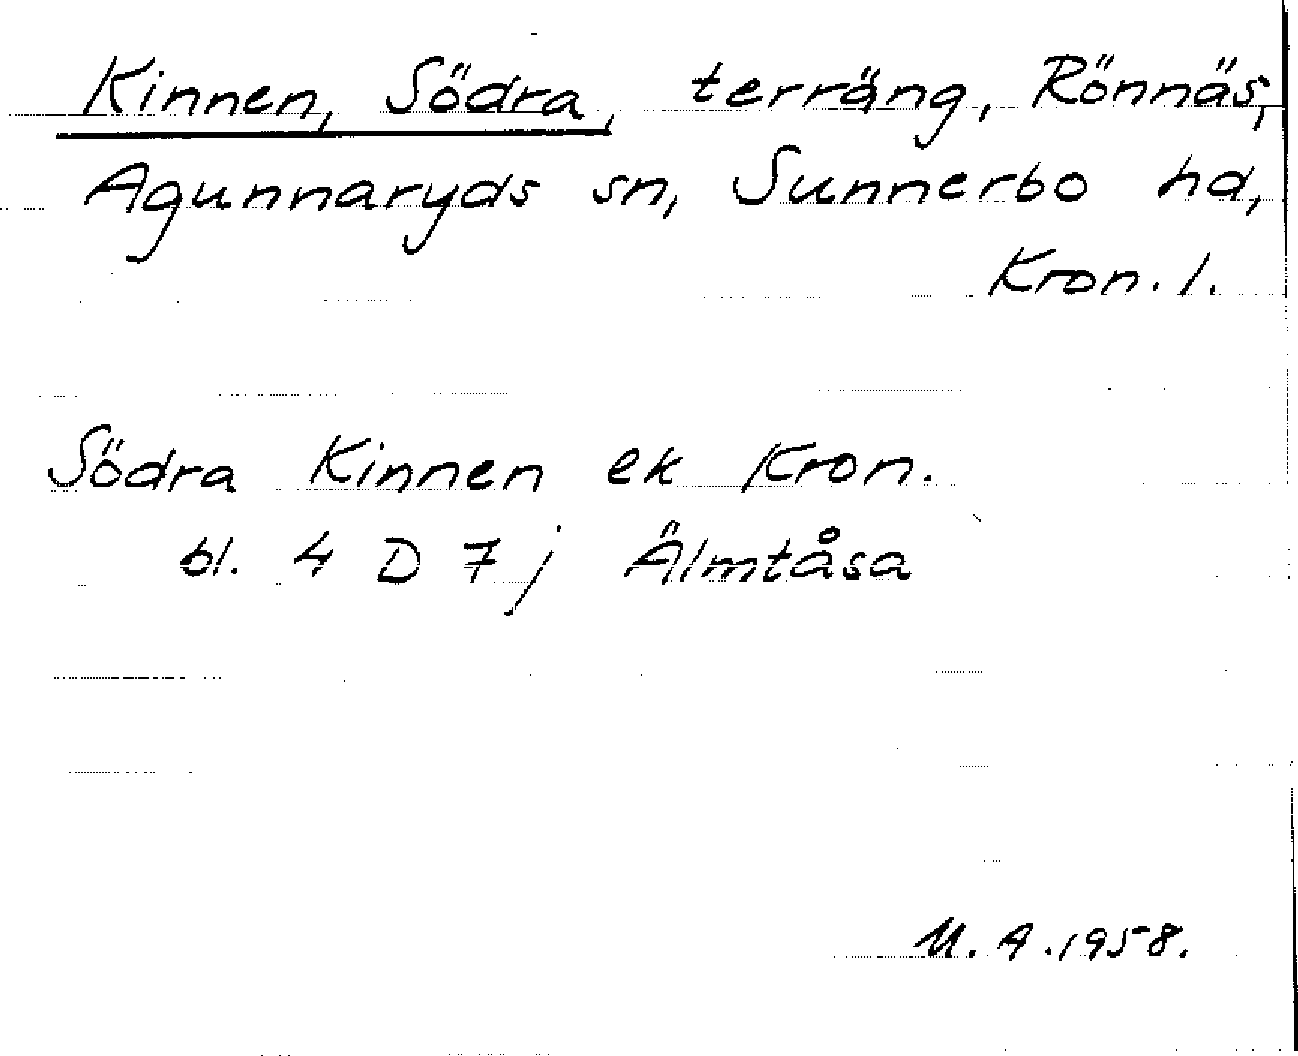 Kinnen, Södra, terräng, Rönnäs,
Agunnaryds sn, Sunnerbo hd,
Kron. l.
Södra Kinnen ek Kron.
bl. 4 D 7 j Älmtåsa
M. A. 1958.